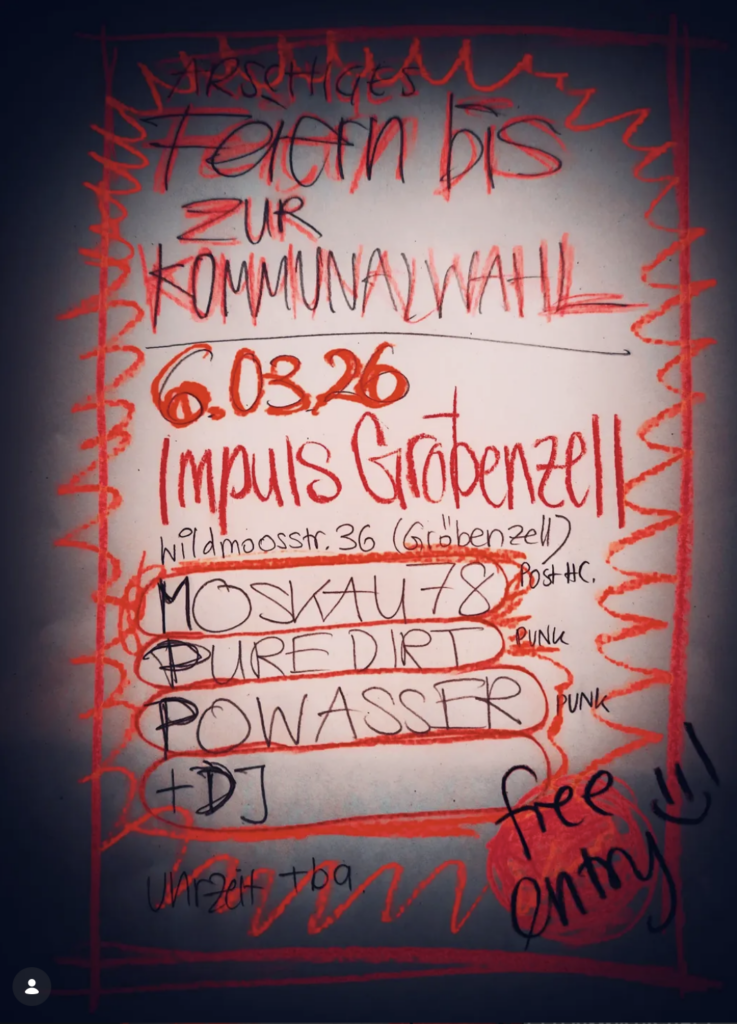 ARSCHIGES
Feiern bis
ZUR
KOMMUNALWAHL
6.03.26
Impuls Gröbenzell
Wildmoosstr. 36 (Gröbenzell)
MOSKAU 78 Post HC.
PURE DIRT PUNK
POWASSER PUNK
+DJ
free
entry
Uhrzeit tba